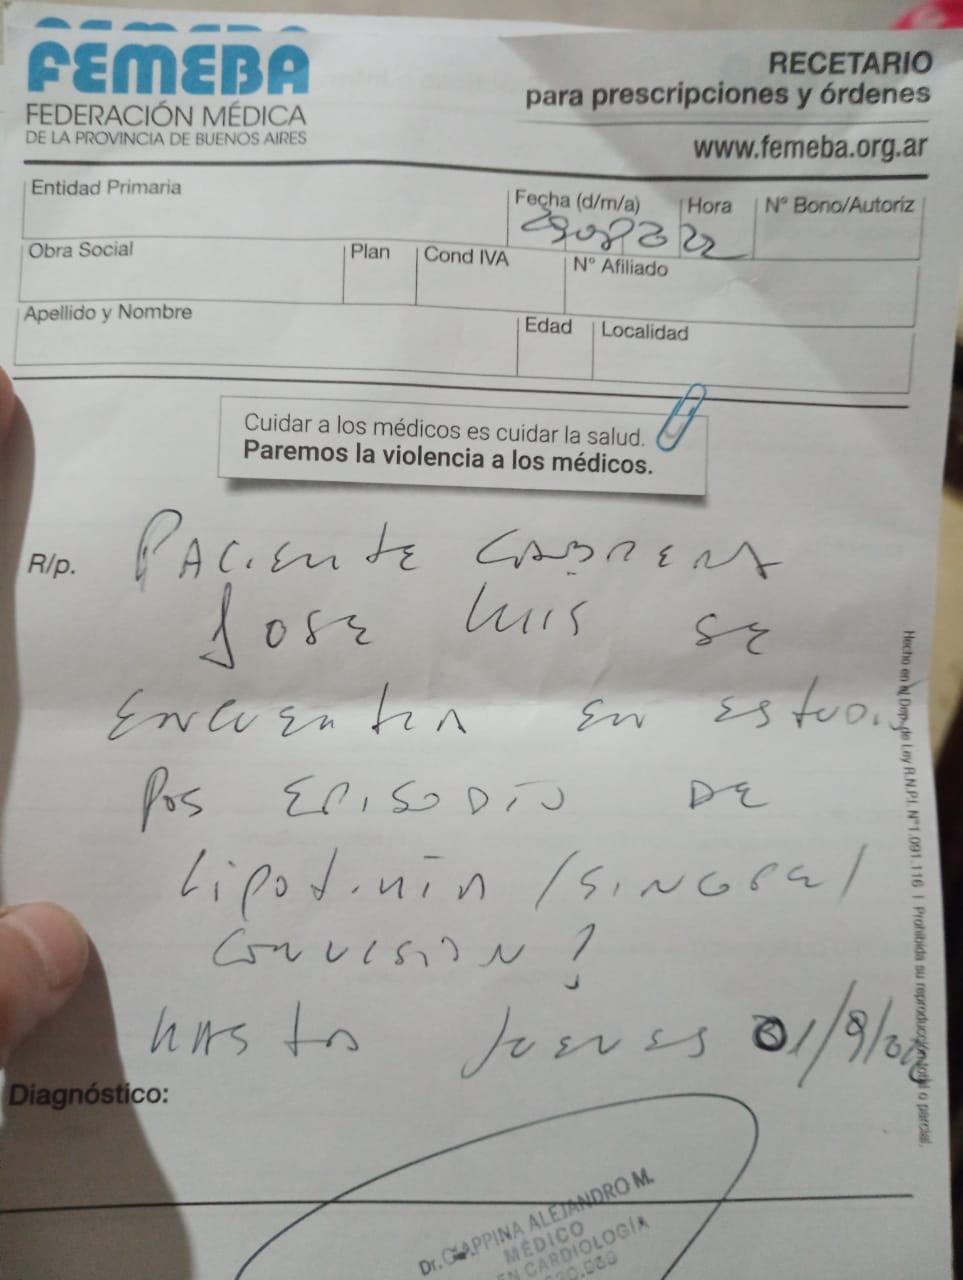 FEMEBA
FEDERACIÓN MÉDICA
DE LA PROVINCIA DE BUENOS AIRES
RECETARIO
para prescripciones y órdenes
www.femeba.org.ar
Entidad Primaria
Fecha (d/m/a)
Hora
N° Bono/Autoriz
Obra Social
Plan
Cond IVA
N° Afiliado
Apellido y Nombre
Edad
Localidad
Cuidar a los médicos es cuidar la salud.
Paremos la violencia a los médicos.
R/p.
PACIENTE CABRERA
JOSE LUIS SE
ENCUENTRA EN ESTUDIO
POS EPISODIO DE
LIPOTIMIA /SINCOPE/
CONVUSION?
HASTA JUEVES 01/9/
Diagnóstico:
Hecho en el Dep. de Ley R.N.P.I. N°1.091.116 | Prohibida su reproducción total o parcial.
Dr. CIAPPINA ALEJANDRO M.
MÉDICO
EN CARDIOLOGÍA